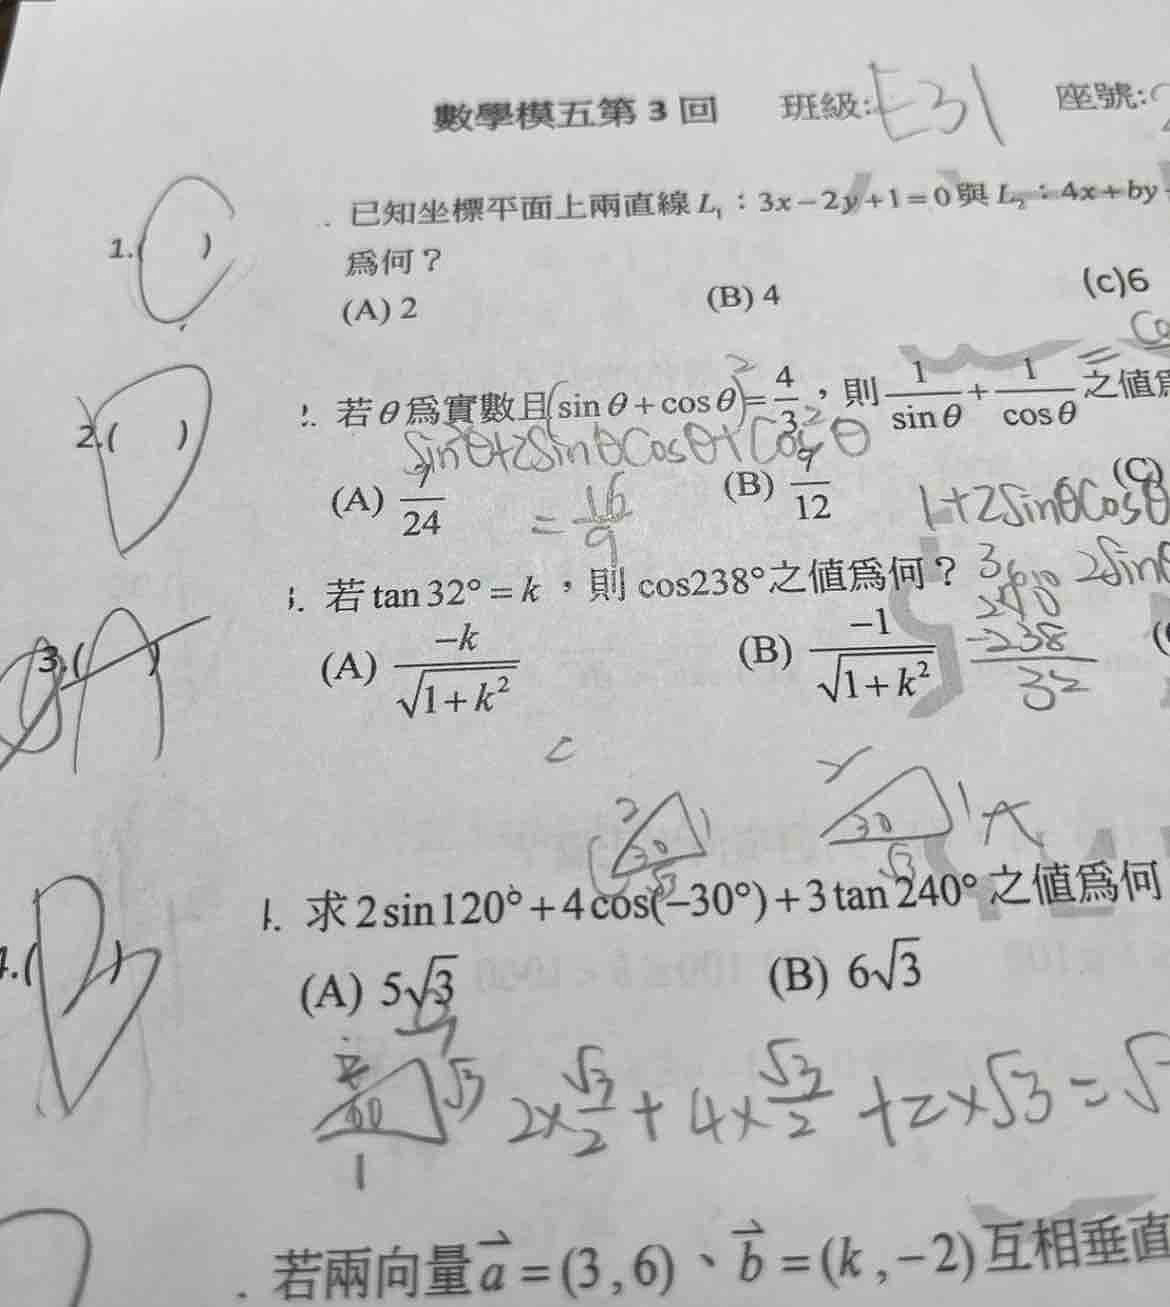 數學模五第 3 回 班級: E31 座號:
1.( ) C 已知坐標平面上兩直線 L₁：3x−2y+1=0 與 L₂：4x+by
為何？
(A) 2 (B) 4 (c)6
2.( ) D 若 θ 為實數且 (sin θ + cos θ)² = 4/3 ²，則 1/sin θ + 1/cos θ 之值為
sin²θ+2sinθcosθ+cos²θ
(A) 7/24 (B) 7/12 (C)
= 16/9 1+2sinθcosθ
3.( ) A 若 tan 32° = k，則 cos238° 之值為何？
(A) −k/√(1+k²) (B) −1/√(1+k²)
−238
32
2 30 1 √3
30 1 √3
4.( ) D 求 2 sin120° + 4 cos(−30°) + 3 tan 240° 之值為何
(A) 5√3 (B) 6√3
60 √3 1
2×√3/2 + 4×√3/2 + 2×√3 = √
若兩向量 a = (3 , 6)、b = (k , −2) 互相垂直